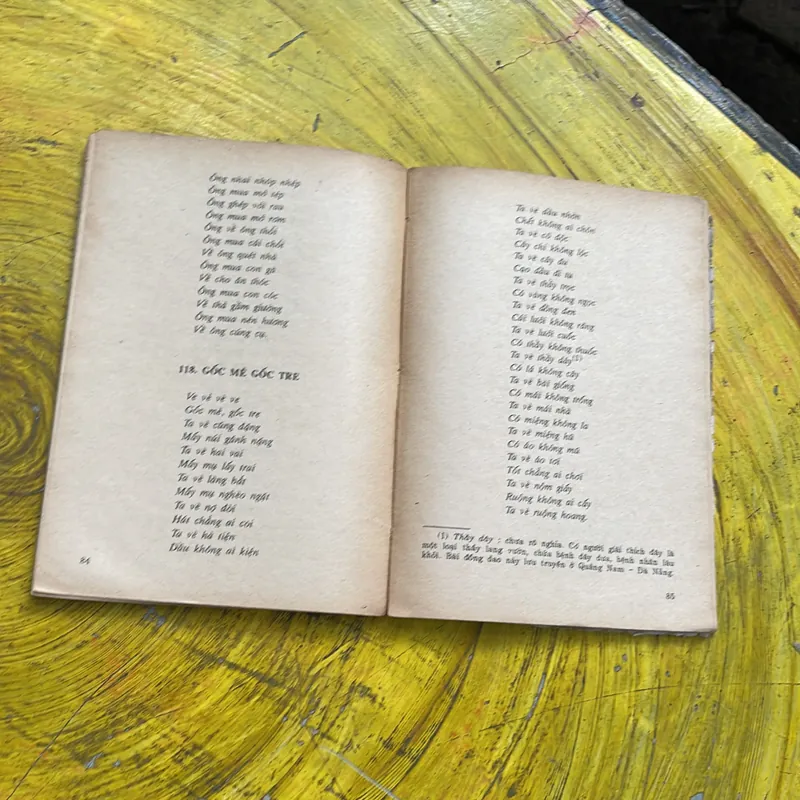 Ông nhai nhóp nhép
Ông mua mô tép
Ông ghép với rau
Ông mua mô rơm
Ông về ông thổi
Ông mua cái chổi
Về ông quét nhà
Ông mua con gà
Về cho ăn thóc
Ông mua con cóc
Về thả gầm giường
Ông mua nén hương
Về ông cúng cụ.
118. GỐC MÉ GỐC TRE
Ve vẻ vè ve
Gốc mé, gốc tre
Ta vè cũng đặng
Mấy núi gánh nặng
Ta vè hai vai
Mấy mụ lấy trai
Ta vè lăng bắt
Mấy mụ nghèo ngặt
Ta vè nợ đòi
Hát chẳng ai coi
Ta vè hà tiện
Dầu không ai kiện
84
Ta vè đâu nhôn
Chết không ai chôn
Ta vè cô độc
Cây chi không lộc
Ta vè cây đu
Cạo đầu đi tu
Ta vè thầy trọc
Có vàng không ngọc
Ta vè đồng đen
Cái lưỡi không răng
Ta vè lưỡi cuốc
Có thầy không thuốc
Ta vè thầy dây(1)
Có lá không cây
Ta vè bài giống
Có mái không trống
Ta vè mái nhà
Có miệng không la
Ta vè miệng hũ
Có áo không mũ
Ta vè áo tơi
Tốt chẳng ai chơi
Ta vè nộm giấy
Ruộng không ai cấy
Ta vè ruộng hoang.
(1) Thầy dây : chưa rõ nghĩa. Có người giải thích đây là
một loại thầy lang vườn, chữa bệnh dây dưa, bệnh nhân lâu
khỏi. Bài đồng dao này lưu truyền ở Quảng Nam – Đà Nẵng.
85